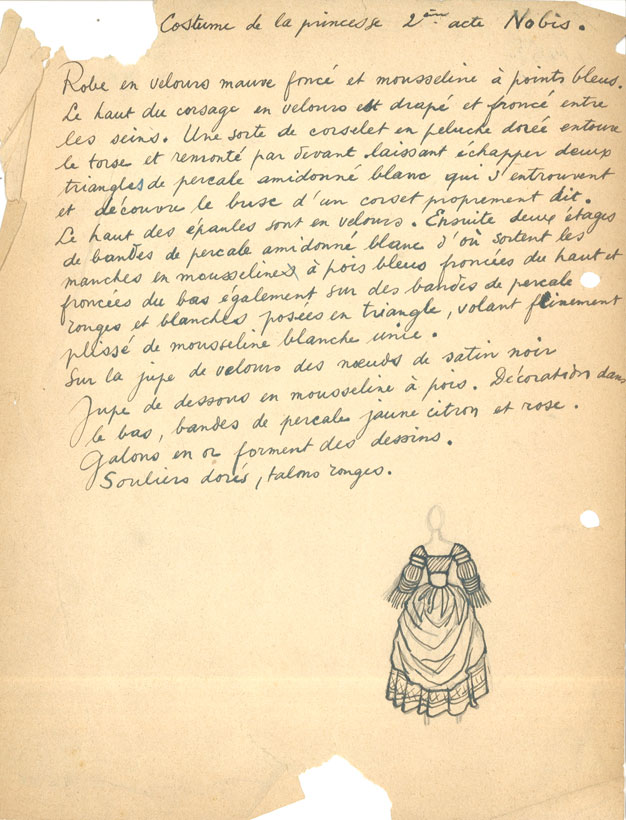 Costume de la princesse 2ème acte Nobis.
Robe en velours mauve foncé et mousseline à points bleus.
Le haut du corsage en velours est drapé et froncé entre
les seins. Une sorte de corselet en peluche dorée entoure
le torse et remonté par devant laissant échapper deux
triangles de percale amidonné blanc qui s'entrouvent
et découvre le busc d'un corset proprement dit.
Le haut des épaules sont en velours. Ensuite deux étages
de bandes de percale amidonné blanc d'où sortent les
manches en mousseline à pois bleus froncées du haut et
froncées du bas également sur des bandes de percale
rouges et blanches posées en triangle, volant finement
plissé de mousseline blanche unie.
Sur la jupe de velours des nœuds de satin noir
Jupe de dessous en mousseline à pois. Décoration dans
le bas, bandes de percale jaune citron et rose.
Galons en or forment des dessins.
Souliers dorés, talons rouges.